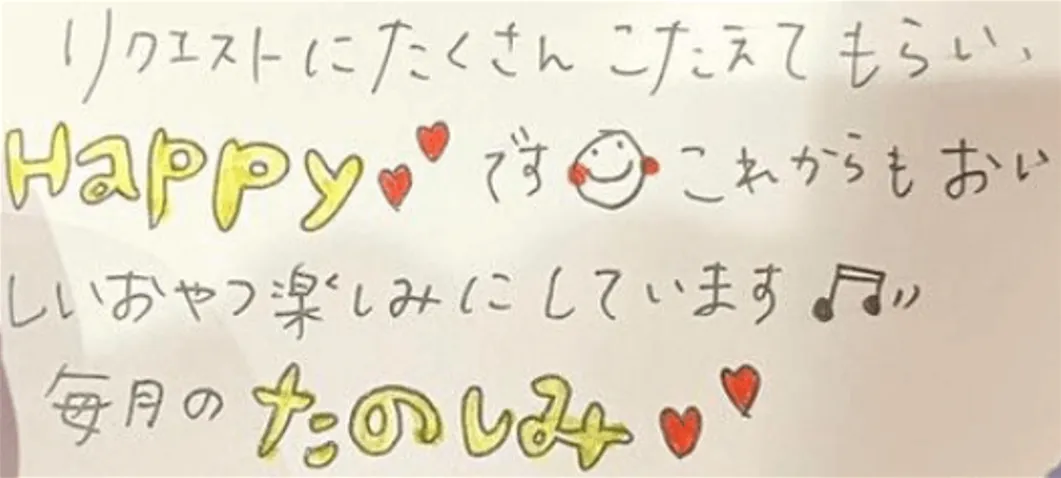 リクエストにたくさんこたえてもらい、
Happyです これからもおい
しいおやつ楽しみにしています
毎月のたのしみ